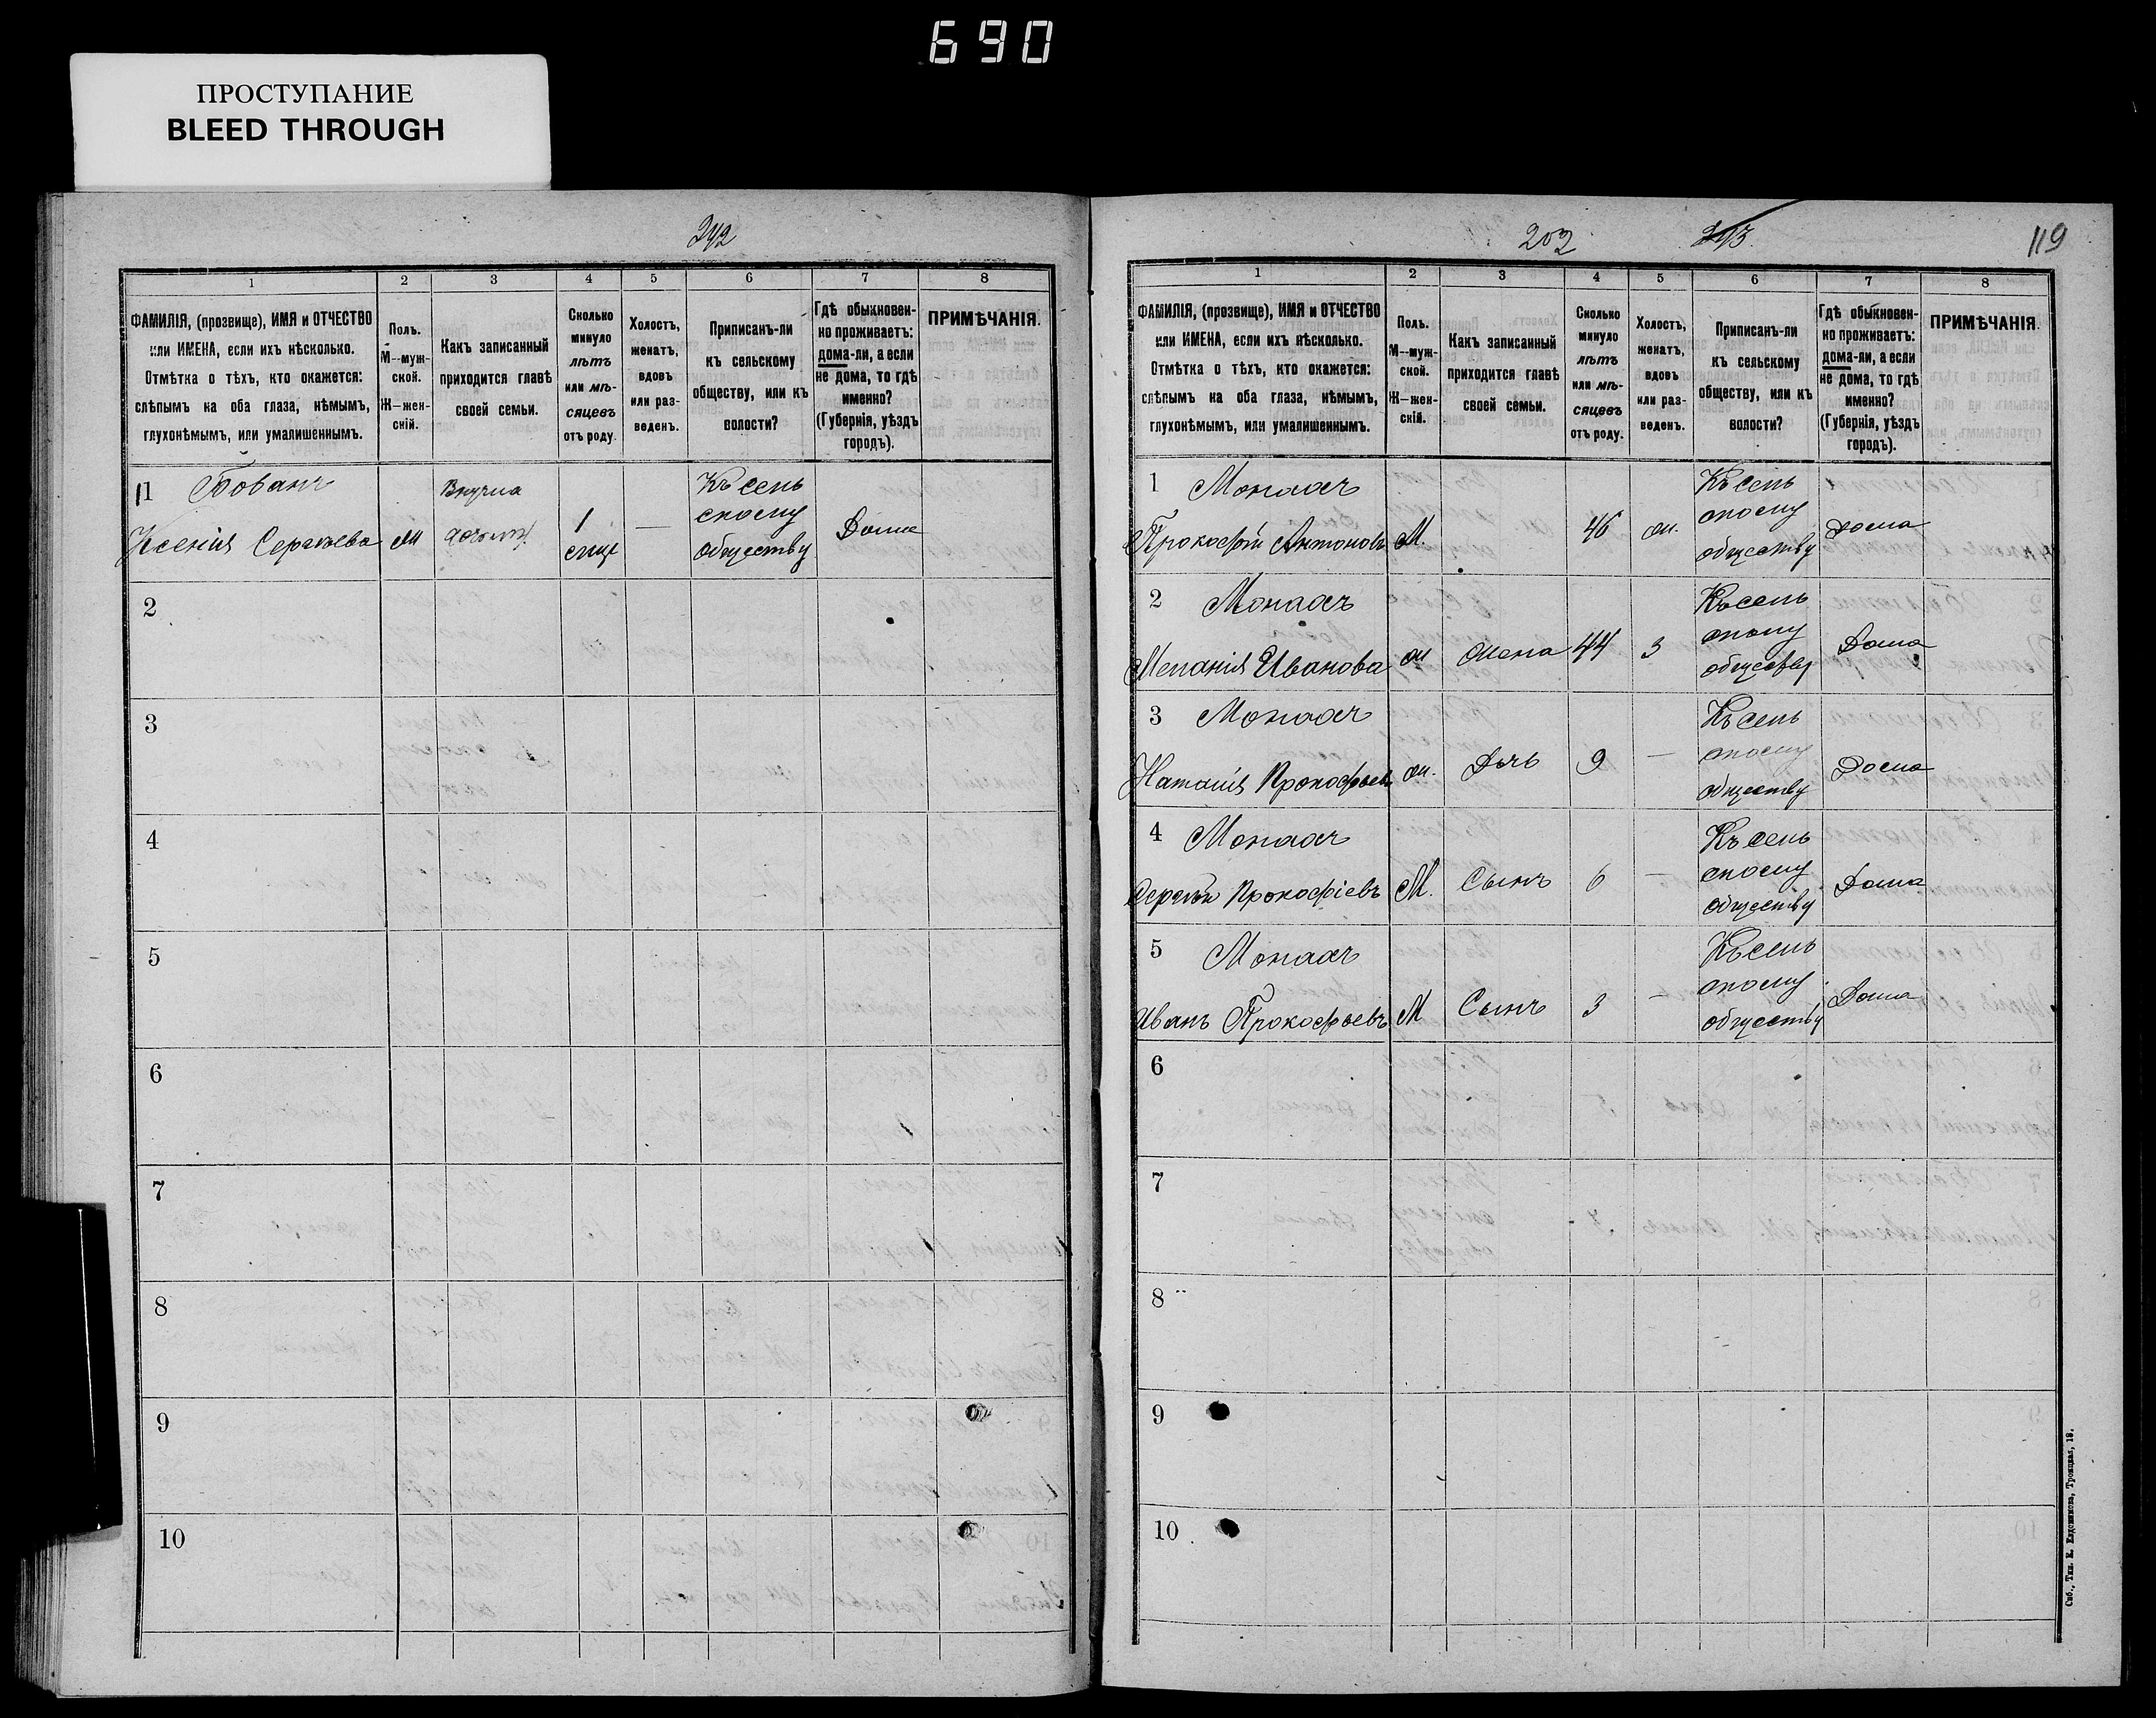 690
ПРОСТУПАНИЕ
BLEED THROUGH
242
1 2 3 4 5 6 7 8
ФАМИЛІЯ, (прозвище), ИМЯ и ОТЧЕСТВО
или ИМЕНА, если ихъ нѣсколько.
Отмѣтка о тѣхъ, кто окажется:
слѣпымъ на оба глаза, нѣмымъ,
глухонѣмымъ, или умалишеннымъ.
Полъ.
М--муж-
ской.
Ж--жен-
скій.
Какъ записанный
приходится главѣ
своей семьи.
Сколько
минуло
лѣтъ
или мѣ-
сяцевъ
отъ роду.
Холостъ,
женатъ,
вдовъ
или раз-
веденъ.
Приписанъ-ли
къ сельскому
обществу, или къ
волости?
Гдѣ обыкновен-
но проживаетъ:
дома-ли, а если
не дома, то гдѣ
именно?
(Губернія, уѣздъ
городъ).
ПРИМѢЧАНІЯ.
11 Бованъ
Ксенія Сергѣева
Внучка
1
—
Къ сель
скому
обществу
Дома
2
3
4
5
6
7
8
9
10
202
243
119
1 2 3 4 5 6 7 8
ФАМИЛІЯ, (прозвище), ИМЯ и ОТЧЕСТВО
или ИМЕНА, если ихъ нѣсколько.
Отмѣтка о тѣхъ, кто окажется:
слѣпымъ на оба глаза, нѣмымъ,
глухонѣмымъ, или умалишеннымъ.
Полъ.
М--муж-
ской.
Ж--жен-
скій.
Какъ записанный
приходится главѣ
своей семьи.
Сколько
минуло
лѣтъ
или мѣ-
сяцевъ
отъ роду.
Холостъ,
женатъ,
вдовъ
или раз-
веденъ.
Приписанъ-ли
къ сельскому
обществу, или къ
волости?
Гдѣ обыкновен-
но проживаетъ:
дома-ли, а если
не дома, то гдѣ
именно?
(Губернія, уѣздъ
городъ).
ПРИМѢЧАНІЯ.
1 Монахъ
Прокофій Антоновъ М. 46 ж.
Къ сель
скому
обществу
Дома
2 Монахъ
Меланія Иванова ж Жена 44 З
Къ сель
скому
обществу
Дома
3 Монахъ
Наталія Прокофьев ж. Дочь 9 —
Къ сель
скому
обществу
Дома
4 Монахъ
Сергѣй Прокофіевъ М. Сынъ 6 —
Къ сель
скому
обществу
Дома
5 Монахъ
Иванъ Прокофьевъ М Сынъ 3 —
Къ сель
скому
обществу
Дома
6
7
8
9
10
Спб., Тип. К. Евдокимова, Троицкая, 18.